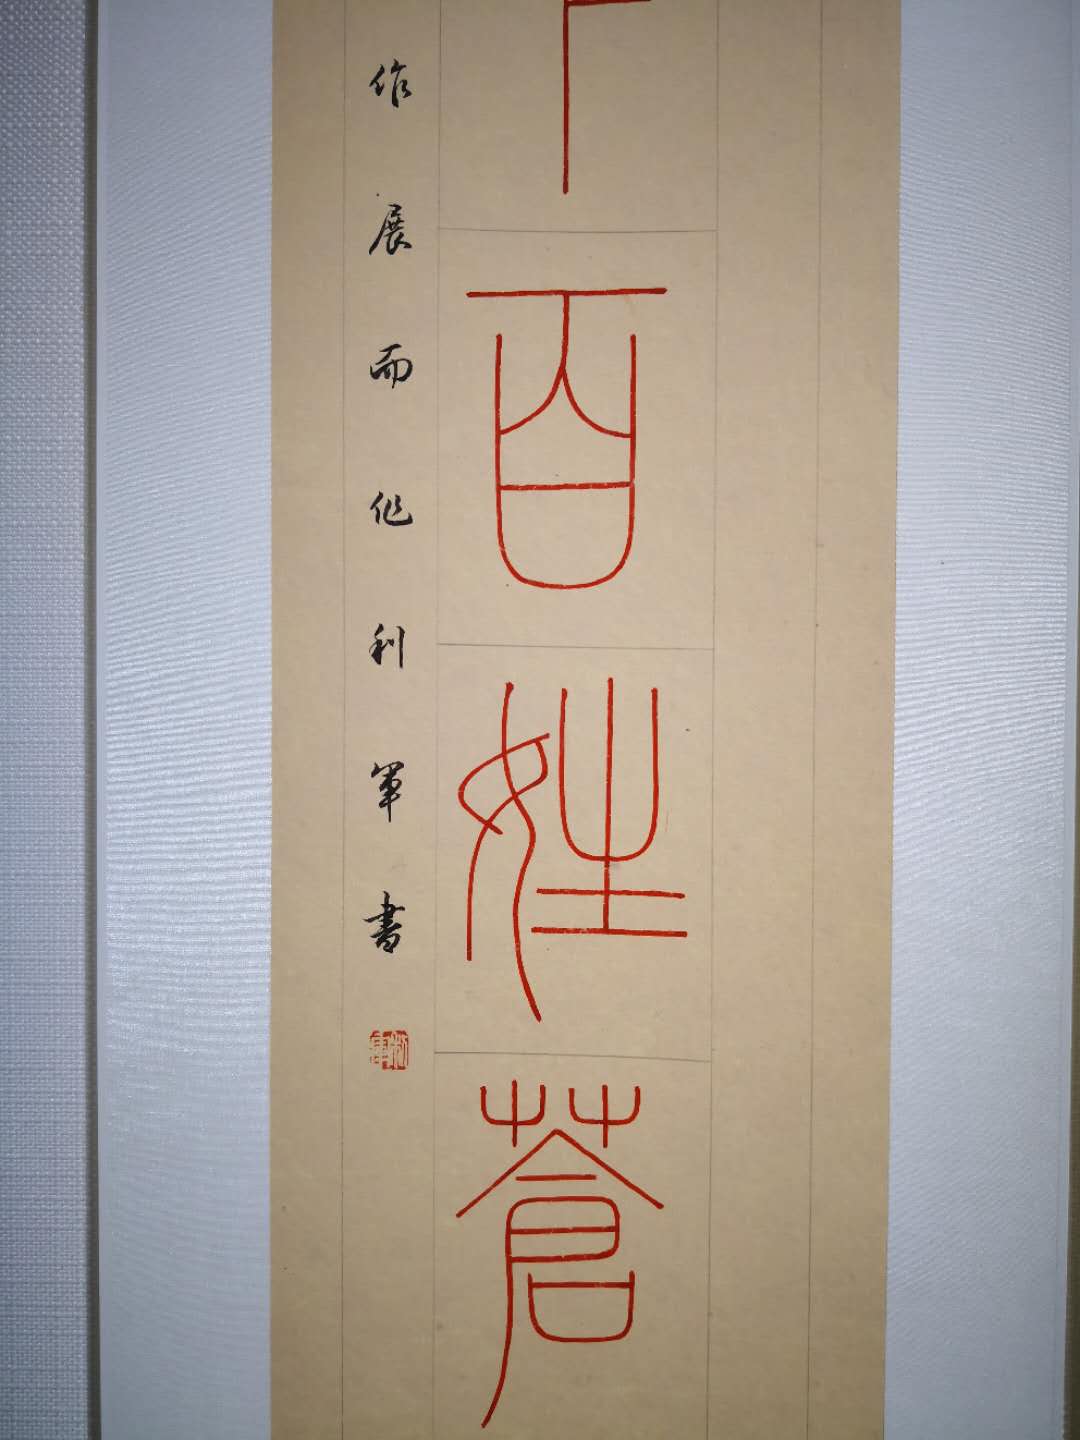 百姓蒼
作展而作利軍書